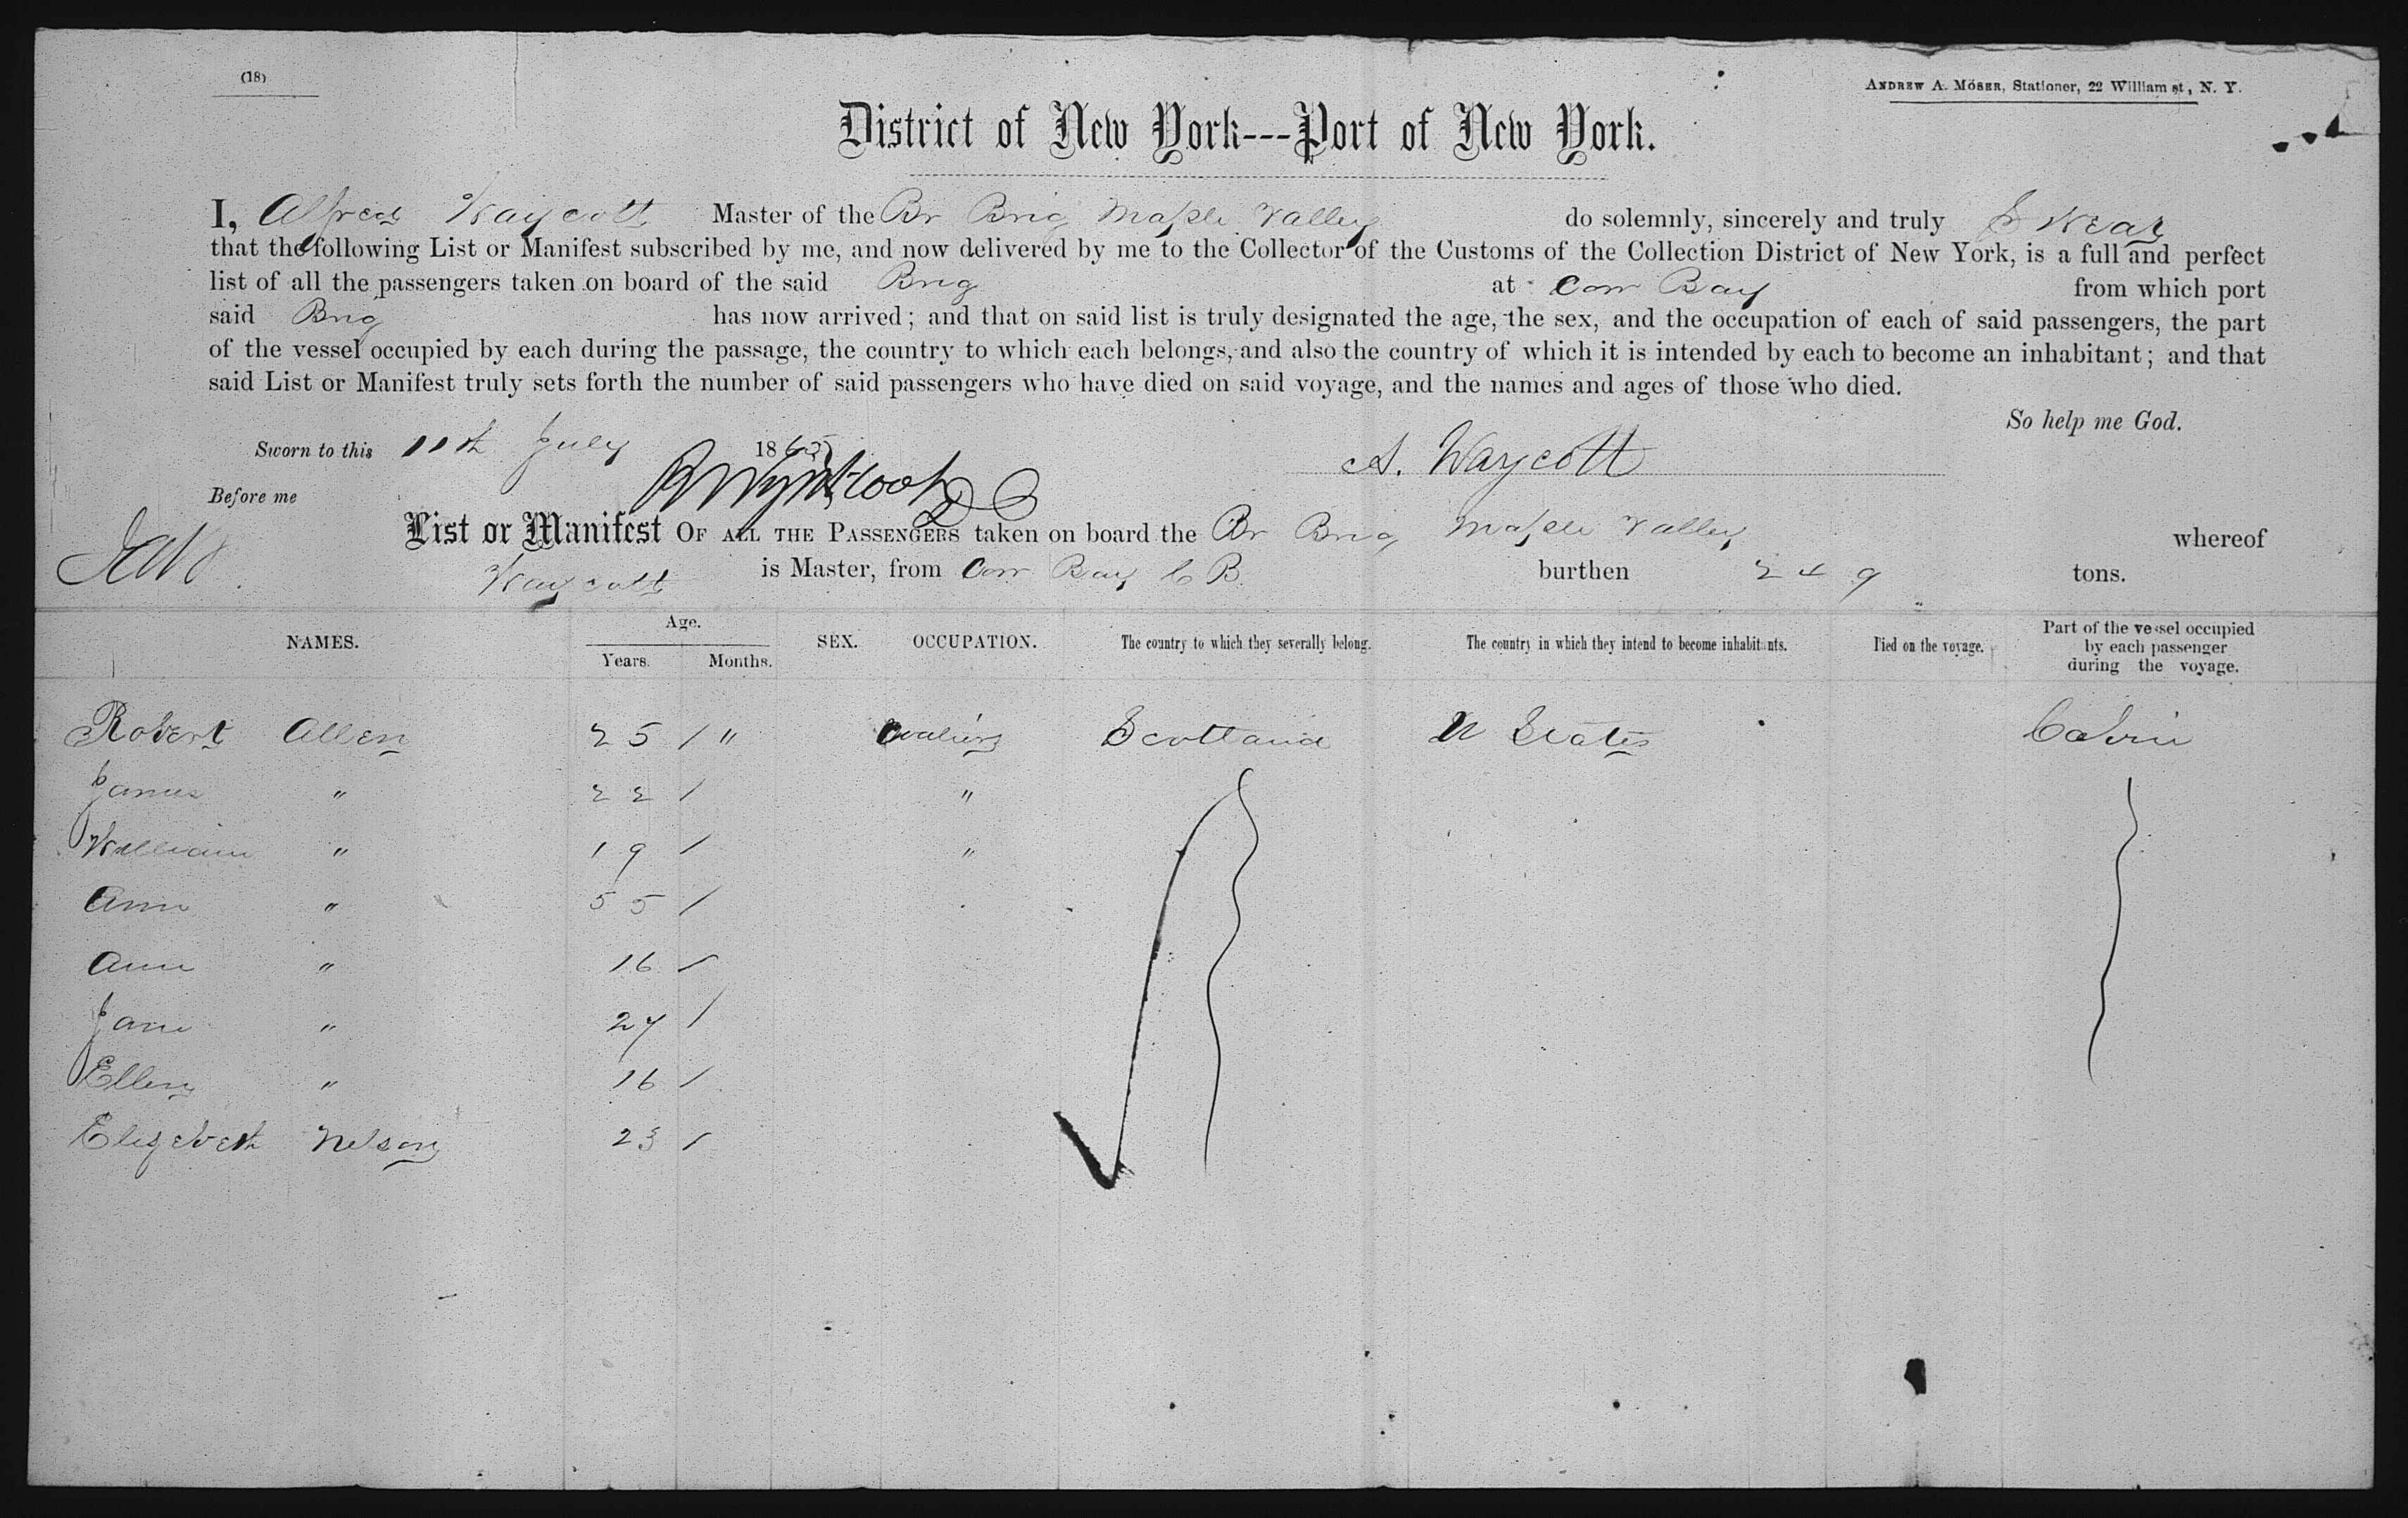 (18)
ANDREW A. MÖSER, Stationer, 22 William st, N. Y.
District of New York---Port of New York.
I, Alfred Waycott Master of the Br Brig Maple Valley do solemnly, sincerely and truly Swear
that the following List or Manifest subscribed by me, and now delivered by me to the Collector of the Customs of the Collection District of New York, is a full and perfect
list of all the passengers taken on board of the said Brig at Cow Bay from which port
said Brig has now arrived; and that on said list is truly designated the age, the sex, and the occupation of each of said passengers, the part
of the vessel occupied by each during the passage, the country to which each belongs, and also the country of which it is intended by each to become an inhabitant; and that
said List or Manifest truly sets forth the number of said passengers who have died on said voyage, and the names and ages of those who died.
So help me God.
Sworn to this 11th July 1865
A. Waycott
Before me
List or Manifest OF ALL THE PASSENGERS taken on board the Br Brig Maple Valley whereof
Waycott is Master, from Cow Bay C B burthen 249 tons.
NAMES. Age. Years. Months. SEX. OCCUPATION. The country to which they severally belong. The country in which they intend to become inhabitants. Died on the voyage. Part of the vessel occupied by each passenger during the voyage.
Robert Allen 25 / " Scotland U States Cabin
James " 22 / "
William " 19 / "
Ann " 55 /
Ann " 16 /
Jane " 27 /
Ellen " 16 /
Elizebeth Nelson 23 /